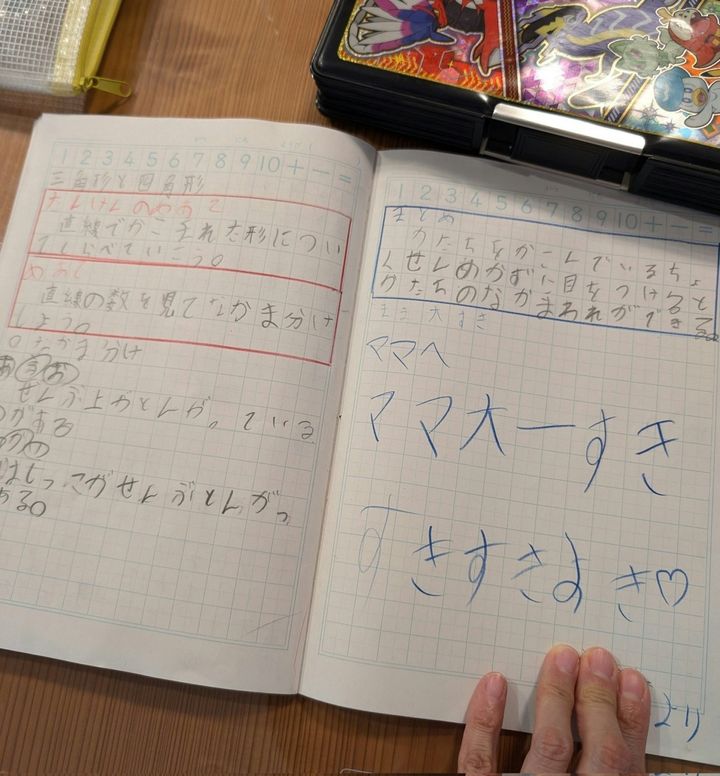 1 2 3 4 5 6 7 8 9 10 + - =
三角形と四角形
たんけんのめあて
直線でかこまれた形につい
てしらべていこう。
めあて
直線の数を見てなかま分け
しよう。
○なかま分け
あ う お
ぜんぶ上がとんがっている
のがある
はじっこがぜんぶとんがっ
ある。
1 2 3 4 5 6 7 8 9 10 + - =
まとめ
かたちをかこんでいるちょ
くせんのかずに目をつけると
かたちのなかまわれができる
ママ大すき
ママへ
ママ大ーすき
すきすきすき♡
より